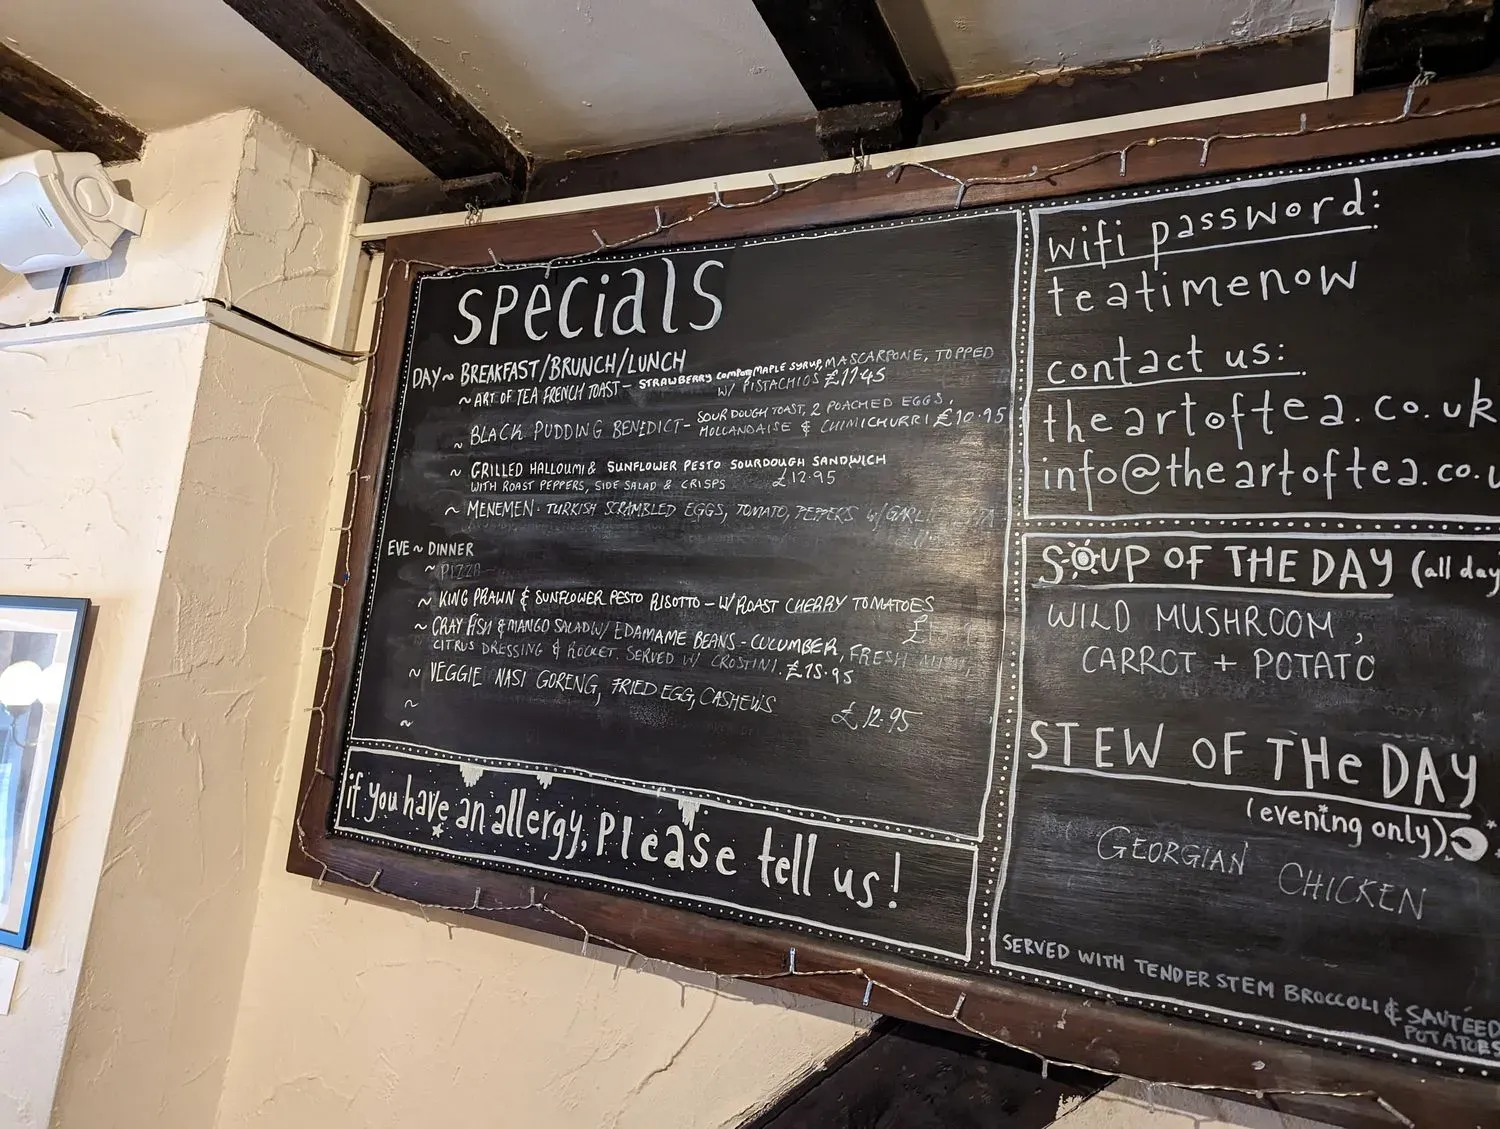 specials
DAY ~ BREAKFAST/BRUNCH/LUNCH
~ ART OF TEA FRENCH TOAST - STRAWBERRY COMPOTE, MAPLE SYRUP, MASCARPONE, TOPPED
W/ PISTACHIOS £11.45
~ BLACK PUDDING BENEDICT - SOURDOUGH TOAST, 2 POACHED EGGS,
HOLLANDAISE & CHIMICHURRI £10.95
~ GRILLED HALLOUMI & SUNFLOWER PESTO SOURDOUGH SANDWICH
WITH ROAST PEPPERS, SIDE SALAD & CRISPS £12.95
~ MENEMEN - TURKISH SCRAMBLED EGGS, TOMATO, PEPPERS W/
EVE ~ DINNER
~ PIZZA
~ KING PRAWN & SUNFLOWER PESTO RISOTTO - W/ ROAST CHERRY TOMATOES
£
~ CRAY FISH & MANGO SALAD W/ EDAMAME BEANS - CUCUMBER, FRESH
CITRUS DRESSING & ROCKET. SERVED W/ CROSTINI. £15.95
~ VEGGIE NASI GORENG, FRIED EGG, CASHEWS
£12.95
~
~
if you have an allergy, please tell us!
wifi password:
teatimenow
contact us:
theartoftea.co.uk
info@theartoftea.co.u
SOUP OF THE DAY (all day
WILD MUSHROOM,
CARROT + POTATO
STEW OF THE DAY
(evening only)
GEORGIAN CHICKEN
SERVED WITH TENDER STEM BROCCOLI & SAUTÉED
POTATOES